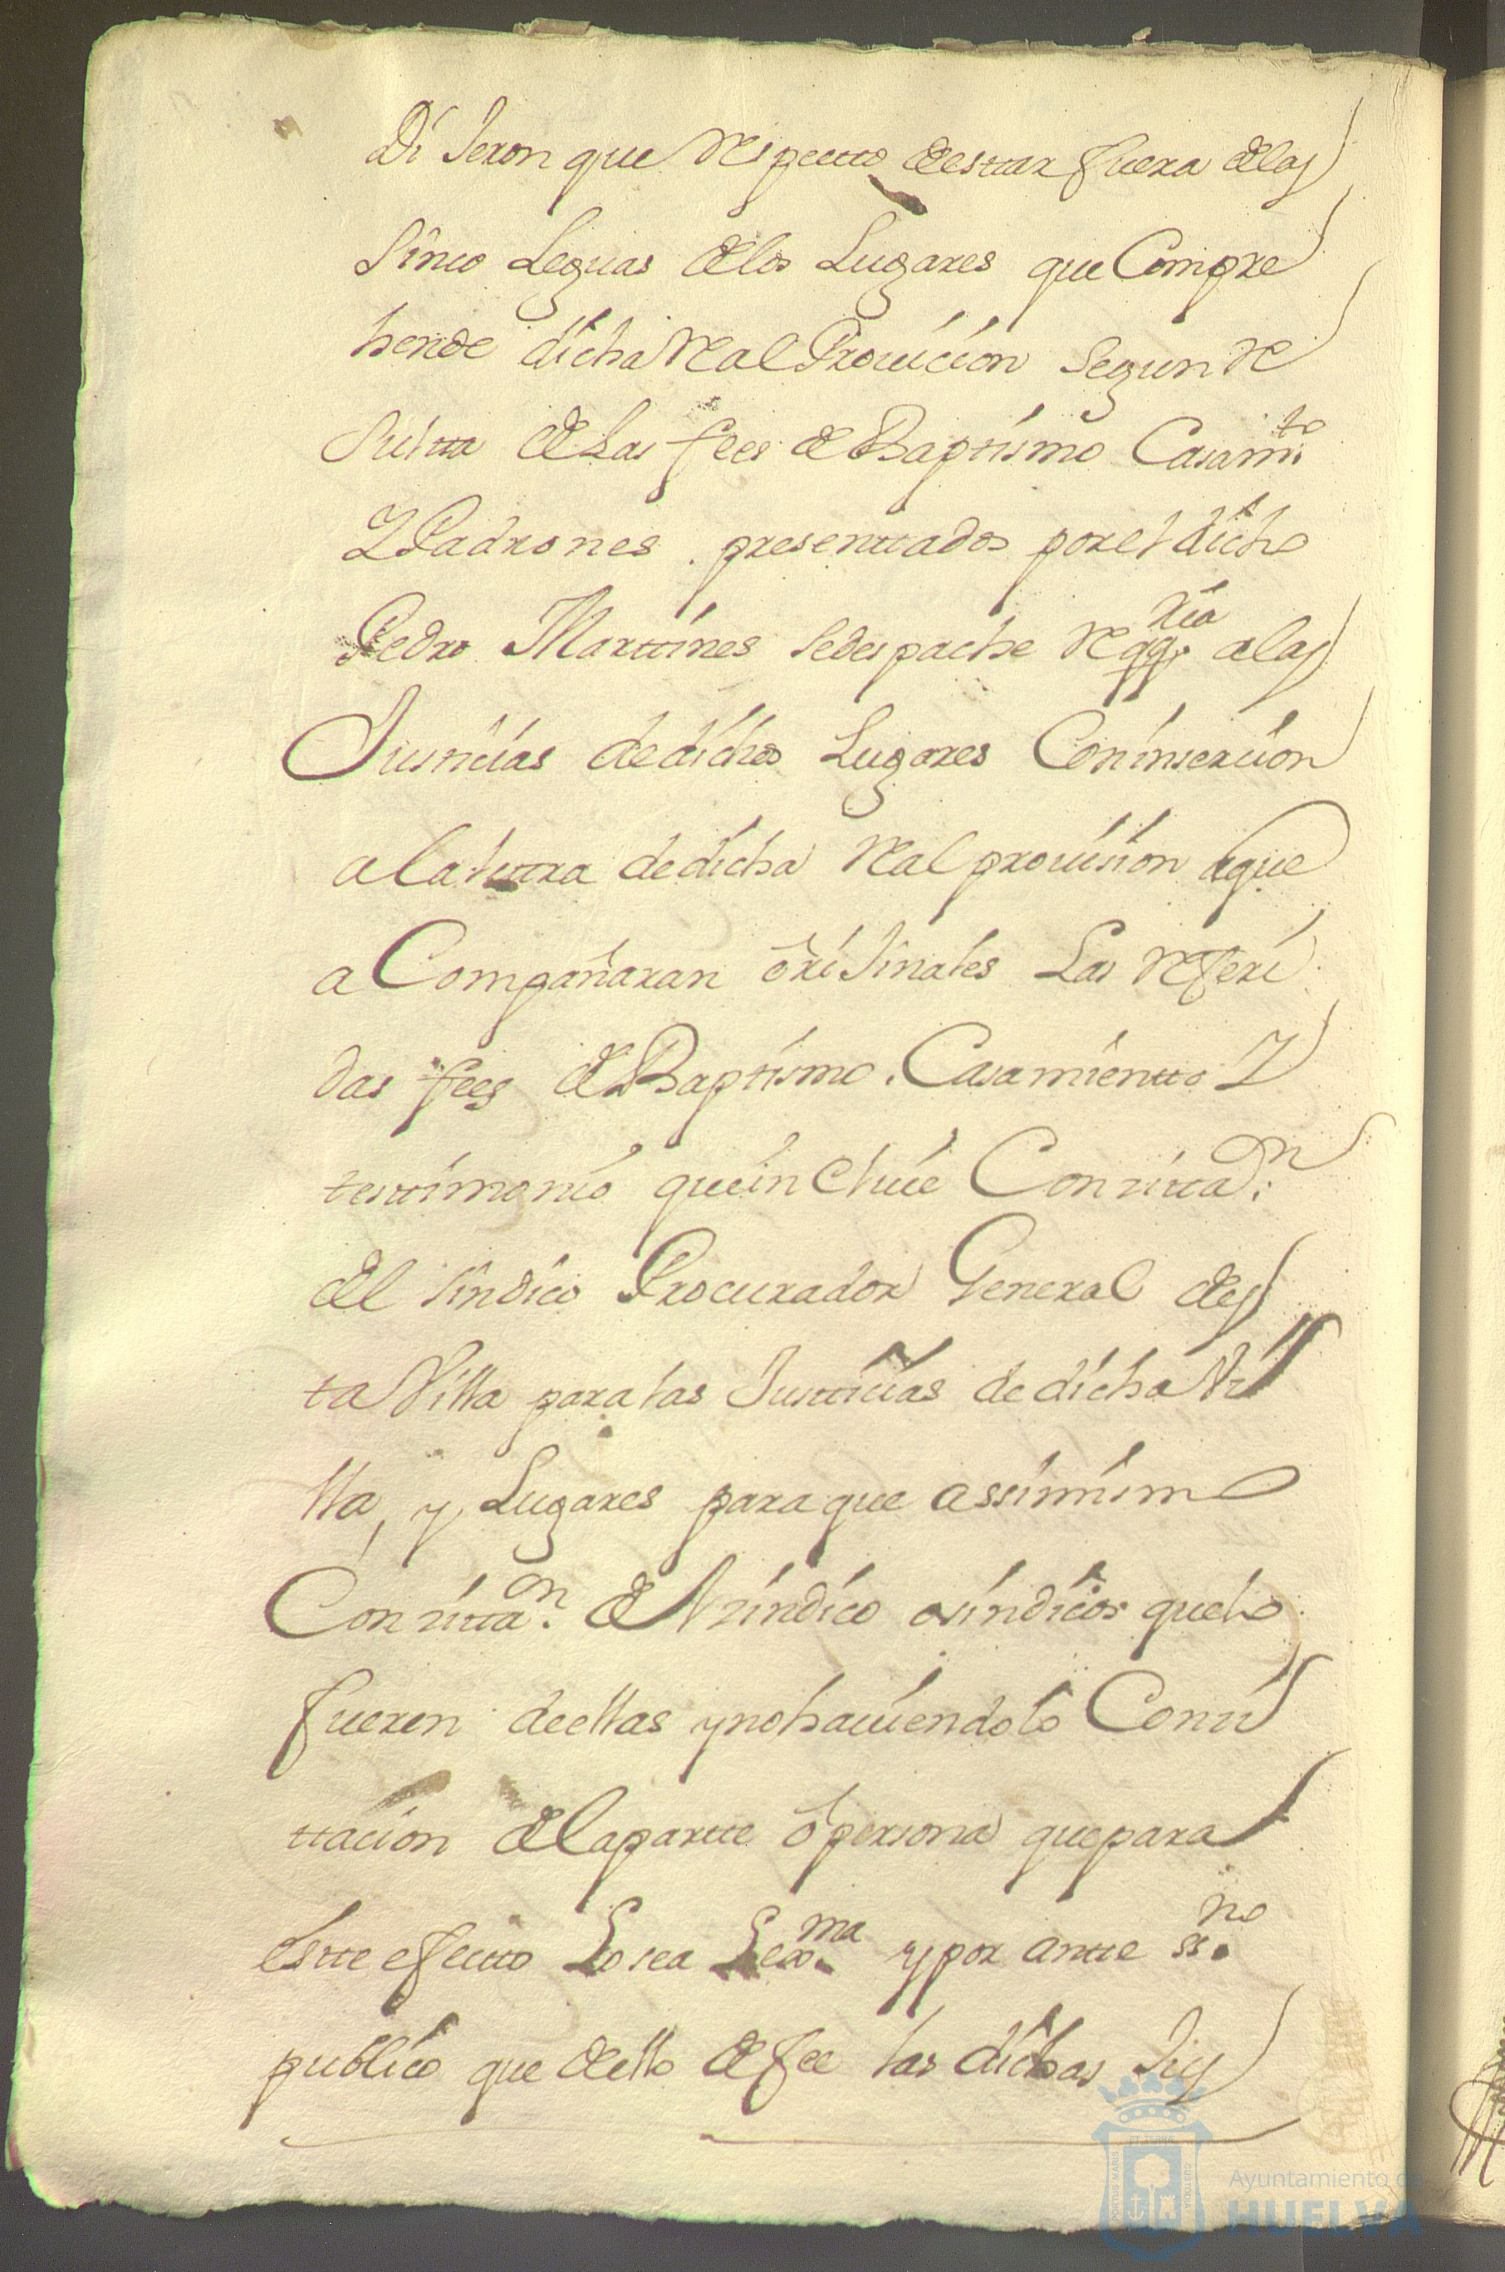 Dijeron que respectto de esttar fuera de las
sinco Leguas de los Lugares que Compre
hende dicha Real Provicion Segun Re
sultta de Las fees de Baptismo Casam.to
Y Padrones presenttados por el dicho
Pedro Marttines se despache Reqq.ria a las
Justicias de dichos Lugares Con insercion
a la lettra de dicha Real provision a que
a Compañaran orijinales Las Referi
das fees de Baptismo. Casamientto Y
testtimonio que incluie Con zitta.on
del sindico Procurador General de es
ta Villa para las Justticias de dicha Vi
lla, y Lugares para que assimismo
Con zitta.on del sindico o sindicos que lo
fueren de ellas y no haviendolo Con zi
ttacion de la partte o persona que para
estte efectto Lo sea Lex.ma y por antte ss.no
publico que de ello de fee las dichas Jus
Ayuntamiento de
HUELVA